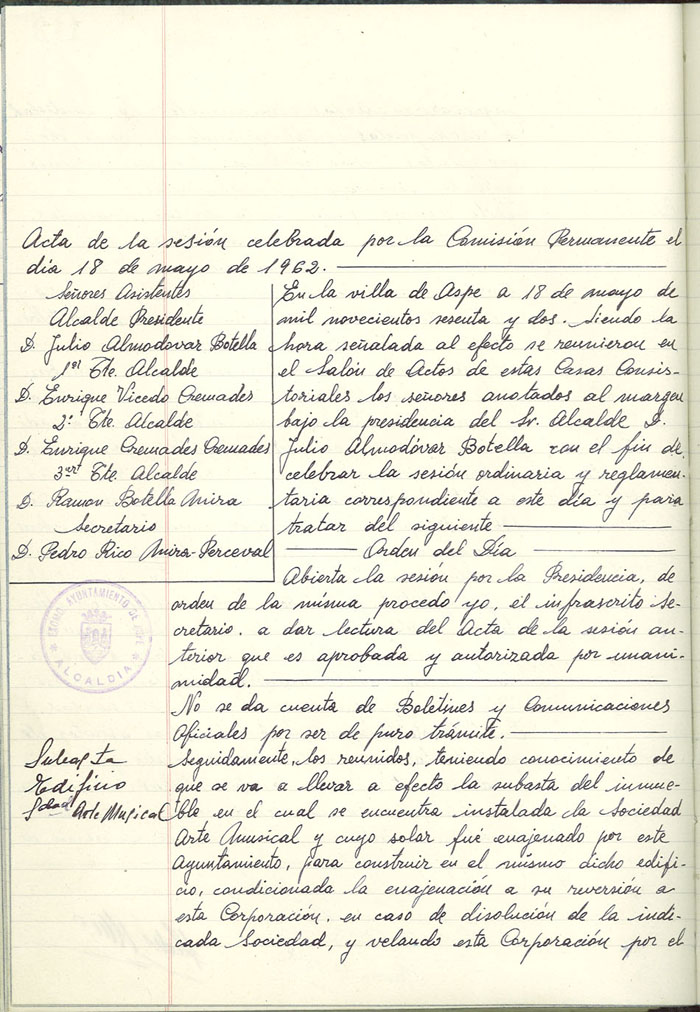 Acta de la sesión celebrada por la Comisión Permanente el
día 18 de mayo de 1962.
Señores Asistentes
Alcalde Presidente
D. Julio Almodovar Botella
1er Tte. Alcalde
D. Enrique Vicedo Cremades
2º Tte. Alcalde
D. Enrique Cremades Cremades
3er Tte. Alcalde
D. Ramon Botella Mira
Secretario
D. Pedro Rico Mira-Perceval
En la villa de Aspe a 18 de mayo de
mil novecientos sesenta y dos. Siendo la
hora señalada al efecto se reunieron en
el Salón de Actos de estas Casas Consis-
toriales los señores anotados al margen
bajo la presidencia del Sr. Alcalde D.
Julio Almodóvar Botella con el fin de
celebrar la sesión ordinaria y reglamen-
taria correspondiente a este día y para
tratar del siguiente
Orden del Día
Abierta la sesión por la Presidencia, de
orden de la misma procedo yo, el infrascrito Se-
cretario, a dar lectura del Acta de la sesión an-
terior que es aprobada y autorizada por unani-
midad.
No se da cuenta de Boletines y Comunicaciones
Oficiales por ser de puro trámite.
EXCMO. AYUNTAMIENTO DE
ALCALDIA
Subasta
Edificio
Sdad Arte Musical
Seguidamente, los reunidos, teniendo conocimiento de
que se va a llevar a efecto la subasta del inmue-
ble en el cual se encuentra instalada la Sociedad
Arte Musical y cuyo solar fué enajenado por este
Ayuntamiento, para construir en el mismo dicho edifi-
cio, condicionada la enajenación a su reversión a
esta Corporación, en caso de disolución de la indi-
cada Sociedad, y velando esta Corporación por el